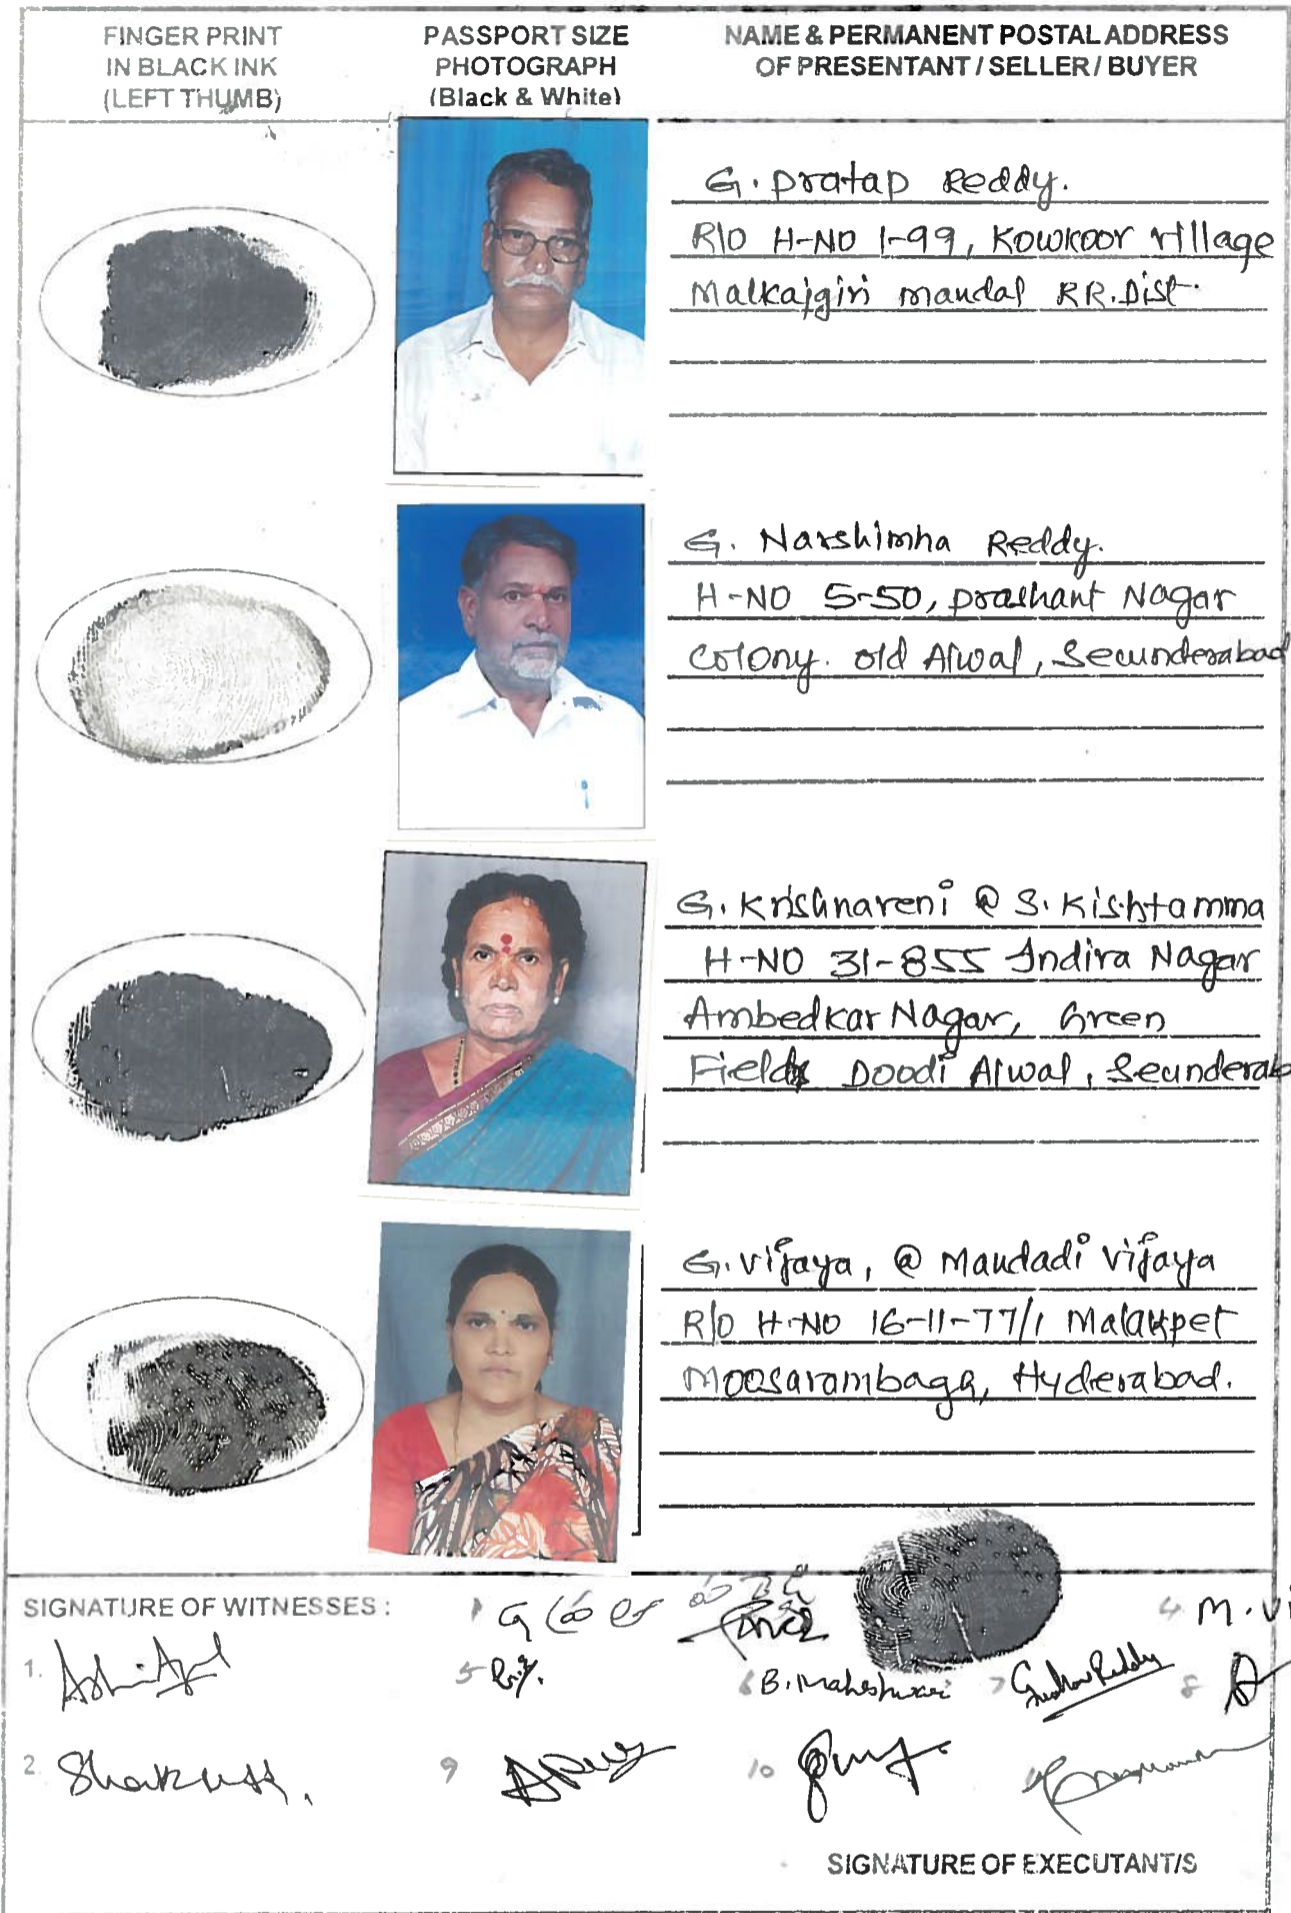 FINGER PRINT
IN BLACK INK
(LEFT THUMB)
PASSPORT SIZE
PHOTOGRAPH
(Black & White)
NAME & PERMANENT POSTAL ADDRESS
OF PRESENTANT / SELLER / BUYER
G. Pratap Reddy.
R/o H-NO 1-99, Kowkoor village
Malkajgiri mandal RR.Dist.
G. Narshimha Reddy.
H-NO 5-50, prashant Nagar
Colony. old Alwal, Secunderabad
G. Krishnaveni @ S. Kishtamma
H-NO 31-855 Indira Nagar
Ambedkar Nagar, Green
Fields Doodi Alwal, Seunderab
G. Vijaya, @ Mandadi Vijaya
R/o H-NO 16-11-77/1 Malakpet
Moosarambaga, Hyderabad.
SIGNATURE OF WITNESSES :
4 M. Vi
1.
5
6 B. Maheshwari
7 Reddy
8
2.
9
10
SIGNATURE OF EXECUTANT/S